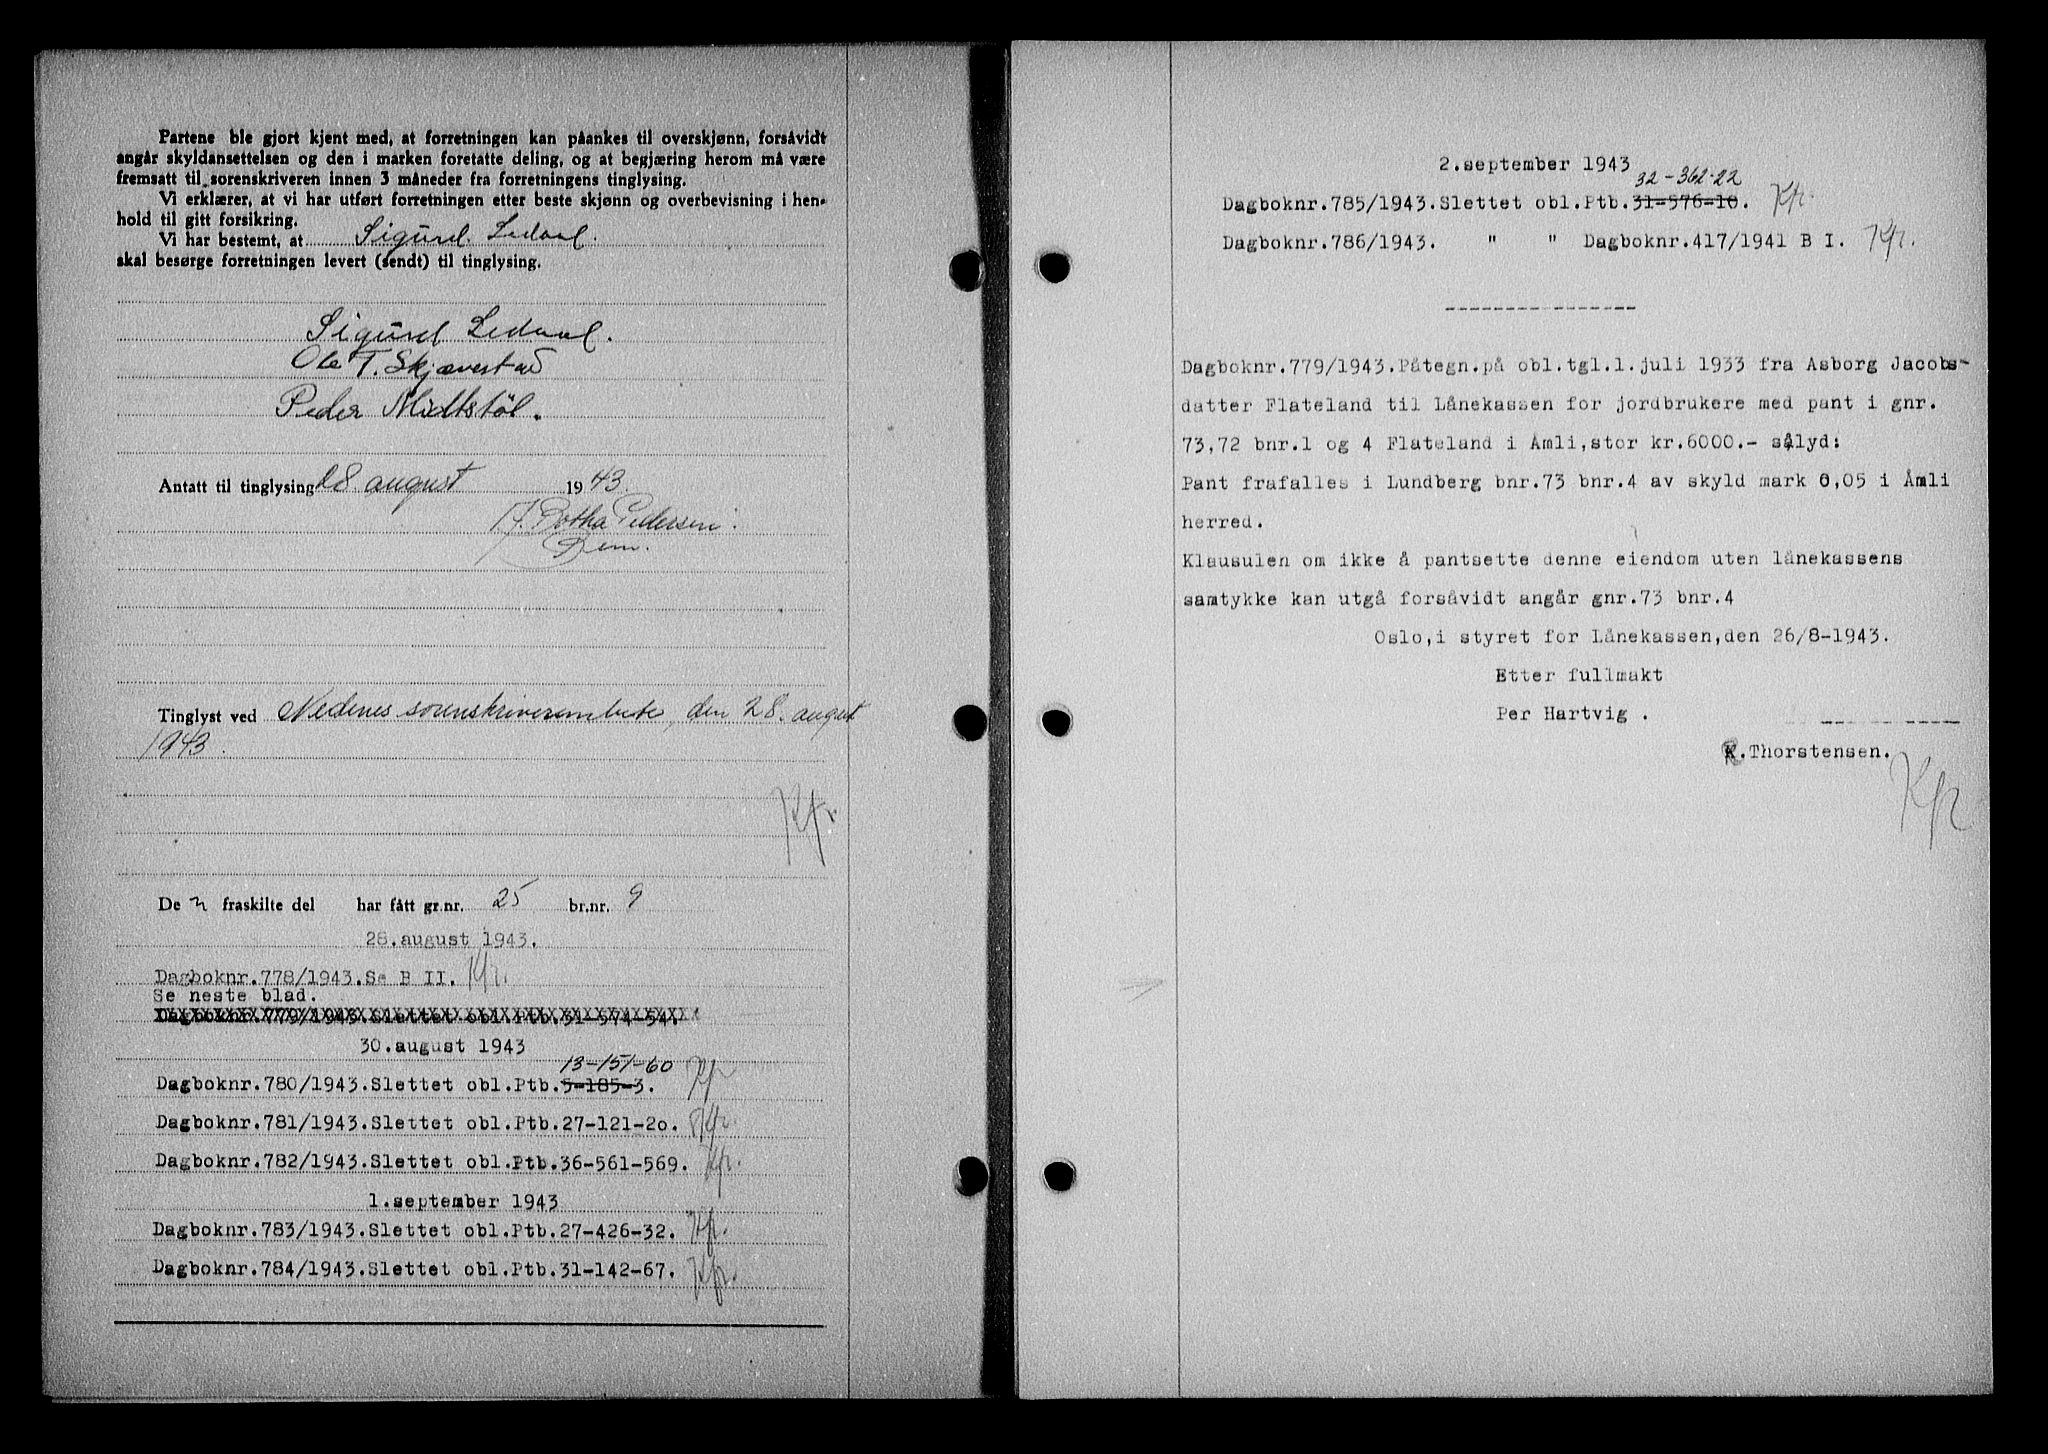 Partene ble gjort kjent med, at forretningen kan påankes til overskjønn, forsåvidt
angår skyldansettelsen og den i marken foretatte deling, og at begjæring herom må være
fremsatt til sorenskriveren innen 3 måneder fra forretningens tinglysing.
Vi erklærer, at vi har utført forretningen etter beste skjønn og overbevisning i hen-
hold til gitt forsikring.
Vi har bestemt, at Sigurd Ledaal.
skal besørge forretningen levert (sendt) til tinglysing.
Sigurd Ledaal.
Ole T. Skjævestad
Peder Midtstöl.
Antatt til tinglysing 28 august 1943.
Botha Pedersen.
Tinglyst ved Nedenes sorenskriverembete, den 28. august
1943.
Kfr.
De n fraskilte del har fått gr.nr. 25 br.nr. 9
28.august 1943.
Dagboknr.778/1943.Se B II. Kfr.
Se neste blad.
Dagboknr.779/1943.Slettet obl.Ptb.31-574-54.
30.august 1943
13-151-60
Dagboknr.780/1943.Slettet obl.Ptb.5-185-3. Kfr
Dagboknr.781/1943.Slettet obl.Ptb.27-121-20. Kfr.
Dagboknr.782/1943.Slettet obl.Ptb.36-561-569. Kfr.
1.september 1943
Dagboknr.783/1943.Slettet obl.Ptb.27-426-32. Kfr.
Dagboknr.784/1943.Slettet obl.Ptb.31-142-67. Kfr.
2.september 1943
32-362-22
Dagboknr.785/1943.Slettet obl.Ptb.31-576-10. Kfr.
Dagboknr.786/1943. " " Dagboknr.417/1941 B I. Kfr.
Dagboknr.779/1943.Påtegn.på obl.tgl.1.juli 1933 fra Asborg Jacobs-
datter Flateland til Lånekassen for jordbrukere med pant i gnr.
73,72 bnr.1 og 4 Flateland i Åmli,stor kr.6000.- sålyd:
Pant frafalles i Lundberg bnr.73 bnr.4 av skyld mark 0,05 i Åmli
herred.
Klausulen om ikke å pantsette denne eiendom uten lånekassens
samtykke kan utgå forsåvidt angår gnr.73 bnr.4
Oslo,i styret for Lånekassen,den 26/8-1943.
Etter fullmakt
Per Hartvig .
R.Thorstensen.
Kfr